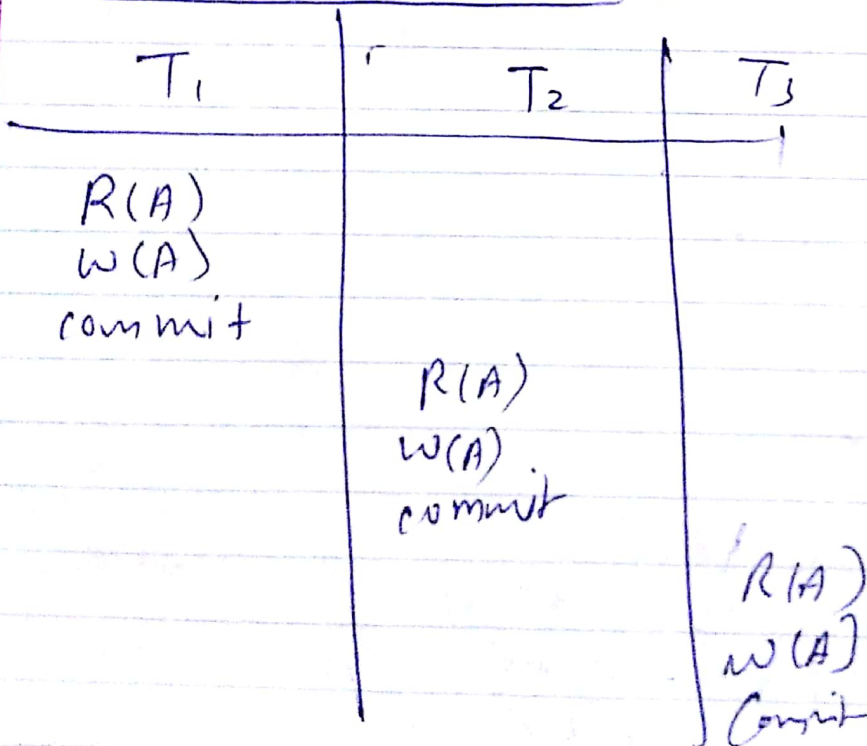 T1 T2 T3
R(A)
W(A)
commit
R(A)
W(A)
commit
R(A)
W(A)
Commit